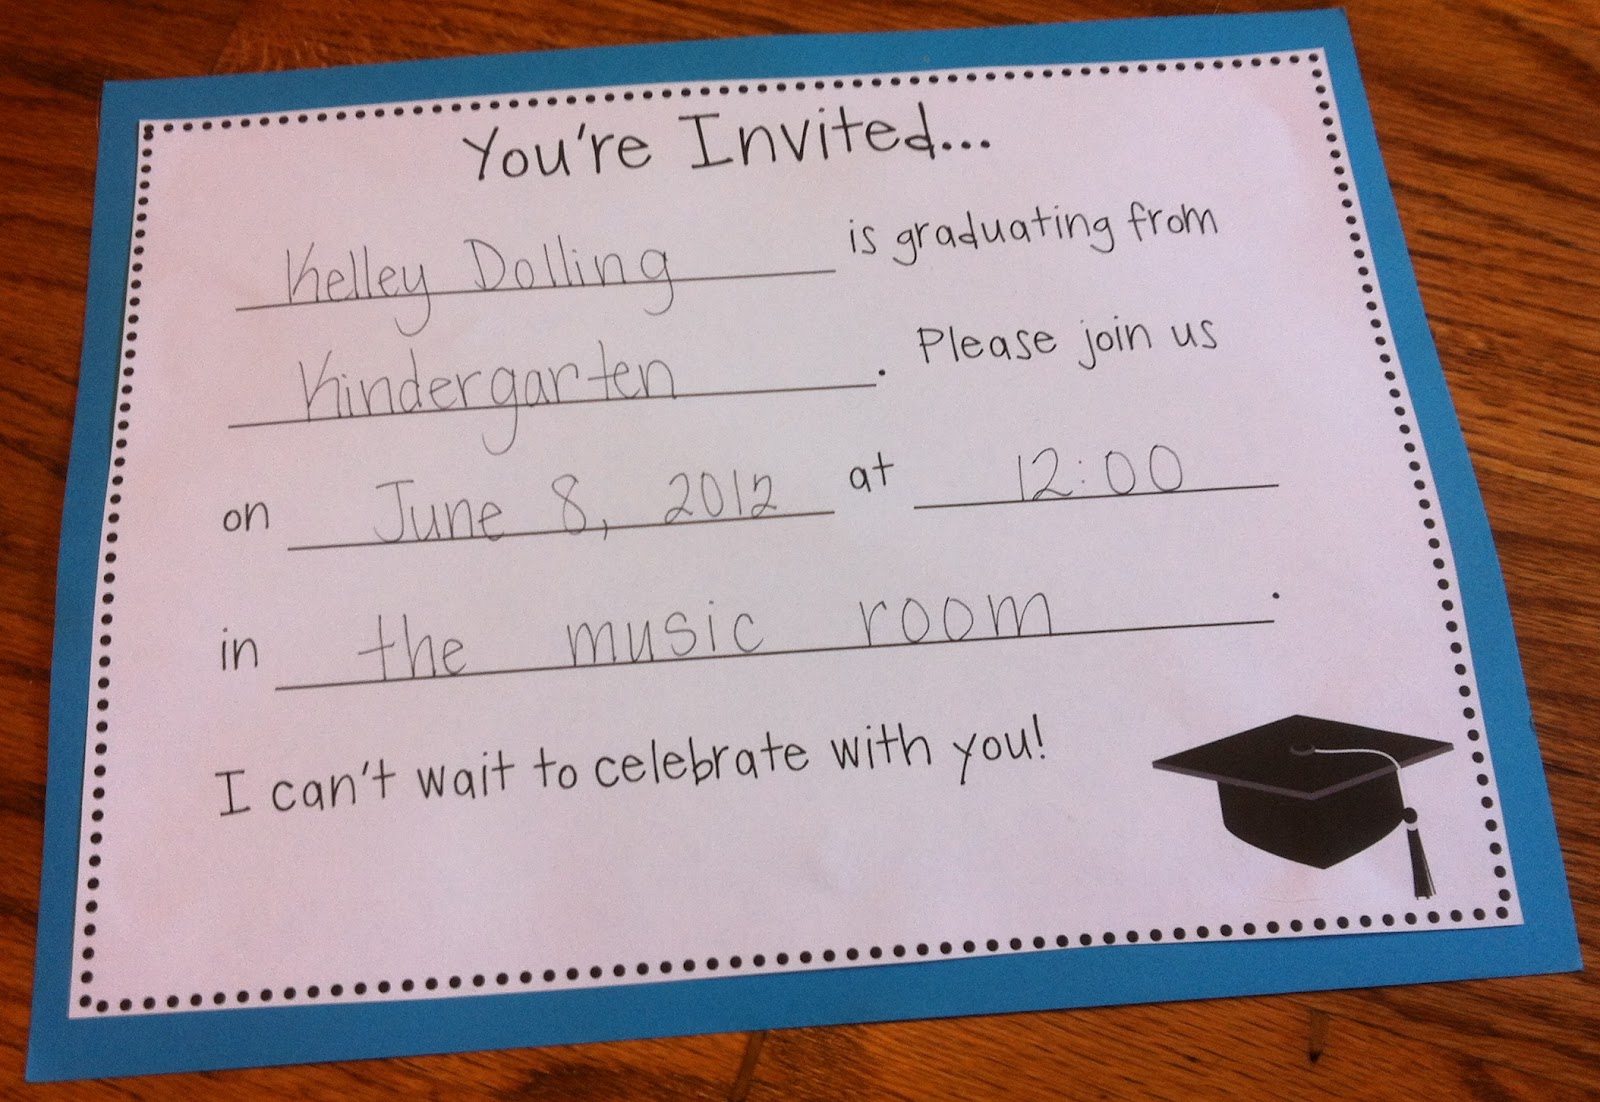 You're Invited...
Kelley Dolling is graduating from
Kindergarten. Please join us
on June 8, 2012 at 12:00
in the music room.
I can't wait to celebrate with you!